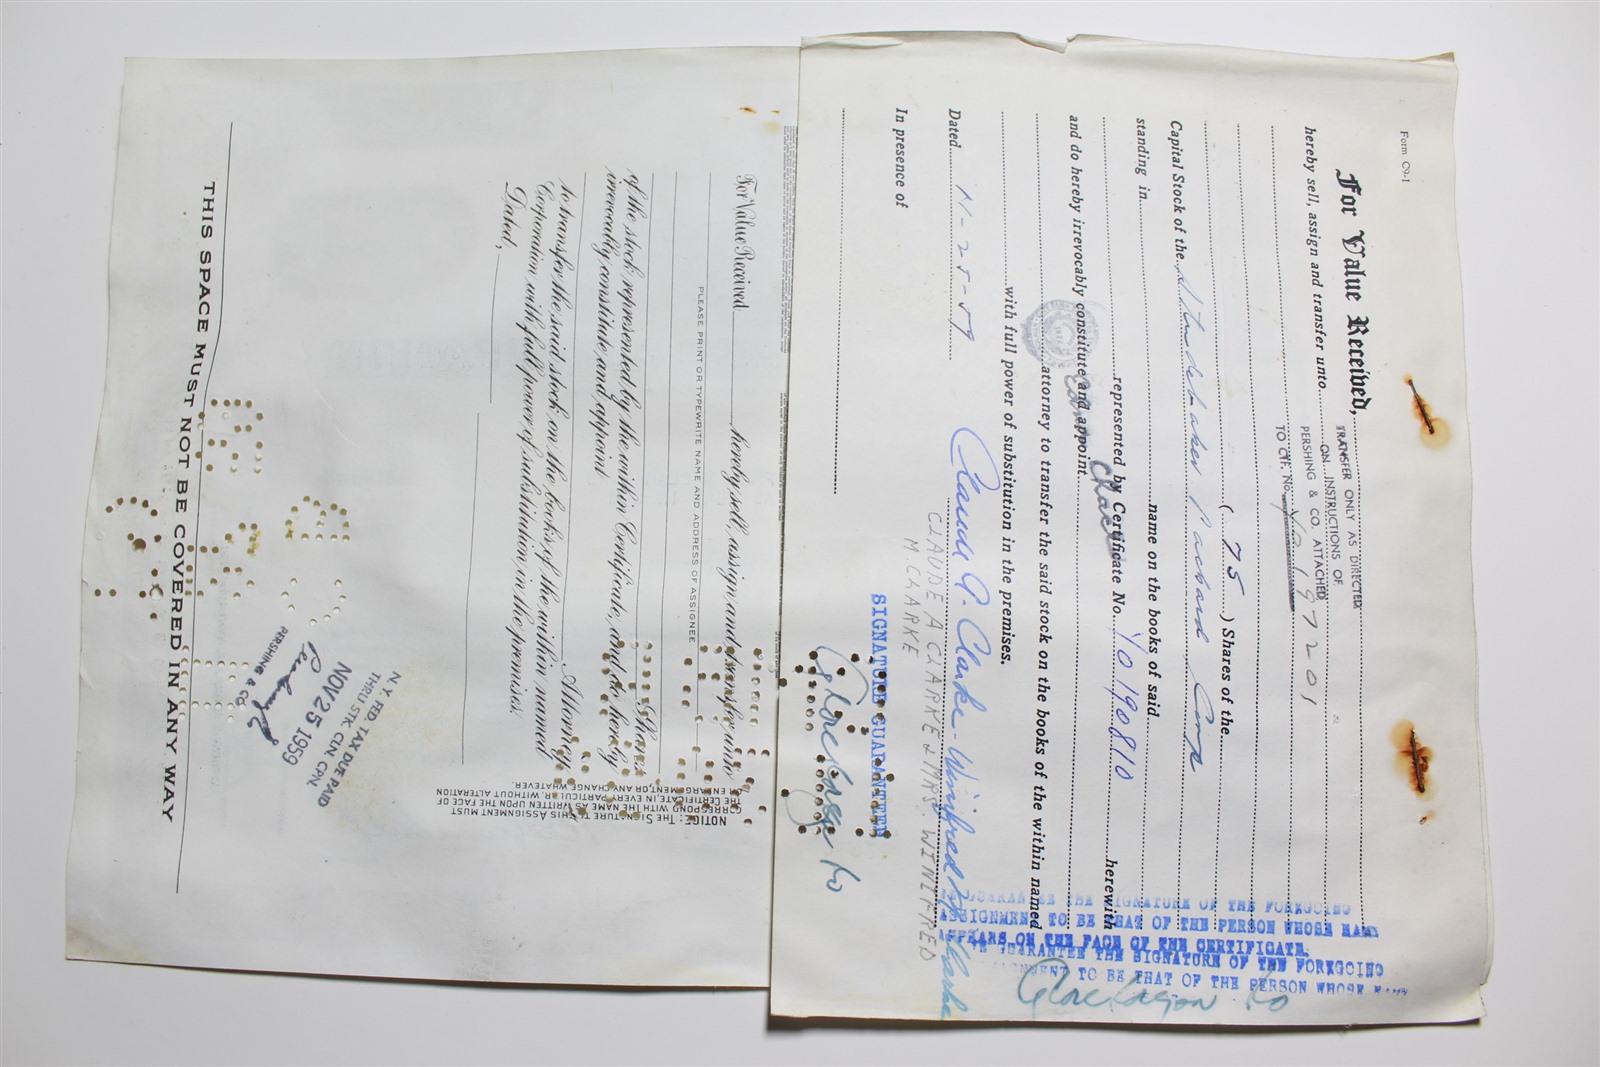 Form C9-1
For Value Received,
TRANSFER ONLY AS DIRECTED
hereby sell, assign and transfer unto
ON INSTRUCTIONS OF
PERSHING & CO. ATTACHED
TO CTF. No. YO 197201
( 75 ) Shares of the
Capital Stock of the Studebaker Packard Corp
standing in name on the books of said
represented by Certificate No. YO 190810 herewith
and do hereby irrevocably constitute and appoint
attorney to transfer the said stock on the books of the within named
with full power of substitution in the premises.
Dated 11-25-59
Claude A. Clarke - Winifred M. Clarke
CLAUDE A CLARKE & MRS. WINIFRED
M. CLARKE
In presence of
SIGNATURE GUARANTEED
GUARANTEE THE SIGNATURE OF THE FOREGOING
ASSIGNMENT TO BE THAT OF THE PERSON WHOSE NAME
APPEARS ON THE FACE OF THE CERTIFICATE.
GUARANTEE THE SIGNATURE OF THE FOREGOING
TO BE THAT OF THE PERSON WHOSE
For Value Received hereby sell, assign and transfer unto
PLEASE PRINT OR TYPEWRITE NAME AND ADDRESS OF ASSIGNEE
Shares
of the stock represented by the within Certificate, and do hereby
irrevocably constitute and appoint
Attorney
to transfer the said stock on the books of the within named
Corporation with full power of substitution in the premises.
Dated,
NOTICE: THE SIGNATURE TO THIS ASSIGNMENT MUST
CORRESPOND WITH THE NAME AS WRITTEN UPON THE FACE OF
THE CERTIFICATE, IN EVERY PARTICULAR, WITHOUT ALTERATION
OR ENLARGEMENT, OR ANY CHANGE WHATEVER.
N.Y. FED. TAX DUE PAID
THRU STK. CLN. CPN.
NOV 25 1959
PERSHING & CO.
THIS SPACE MUST NOT BE COVERED IN ANY WAY